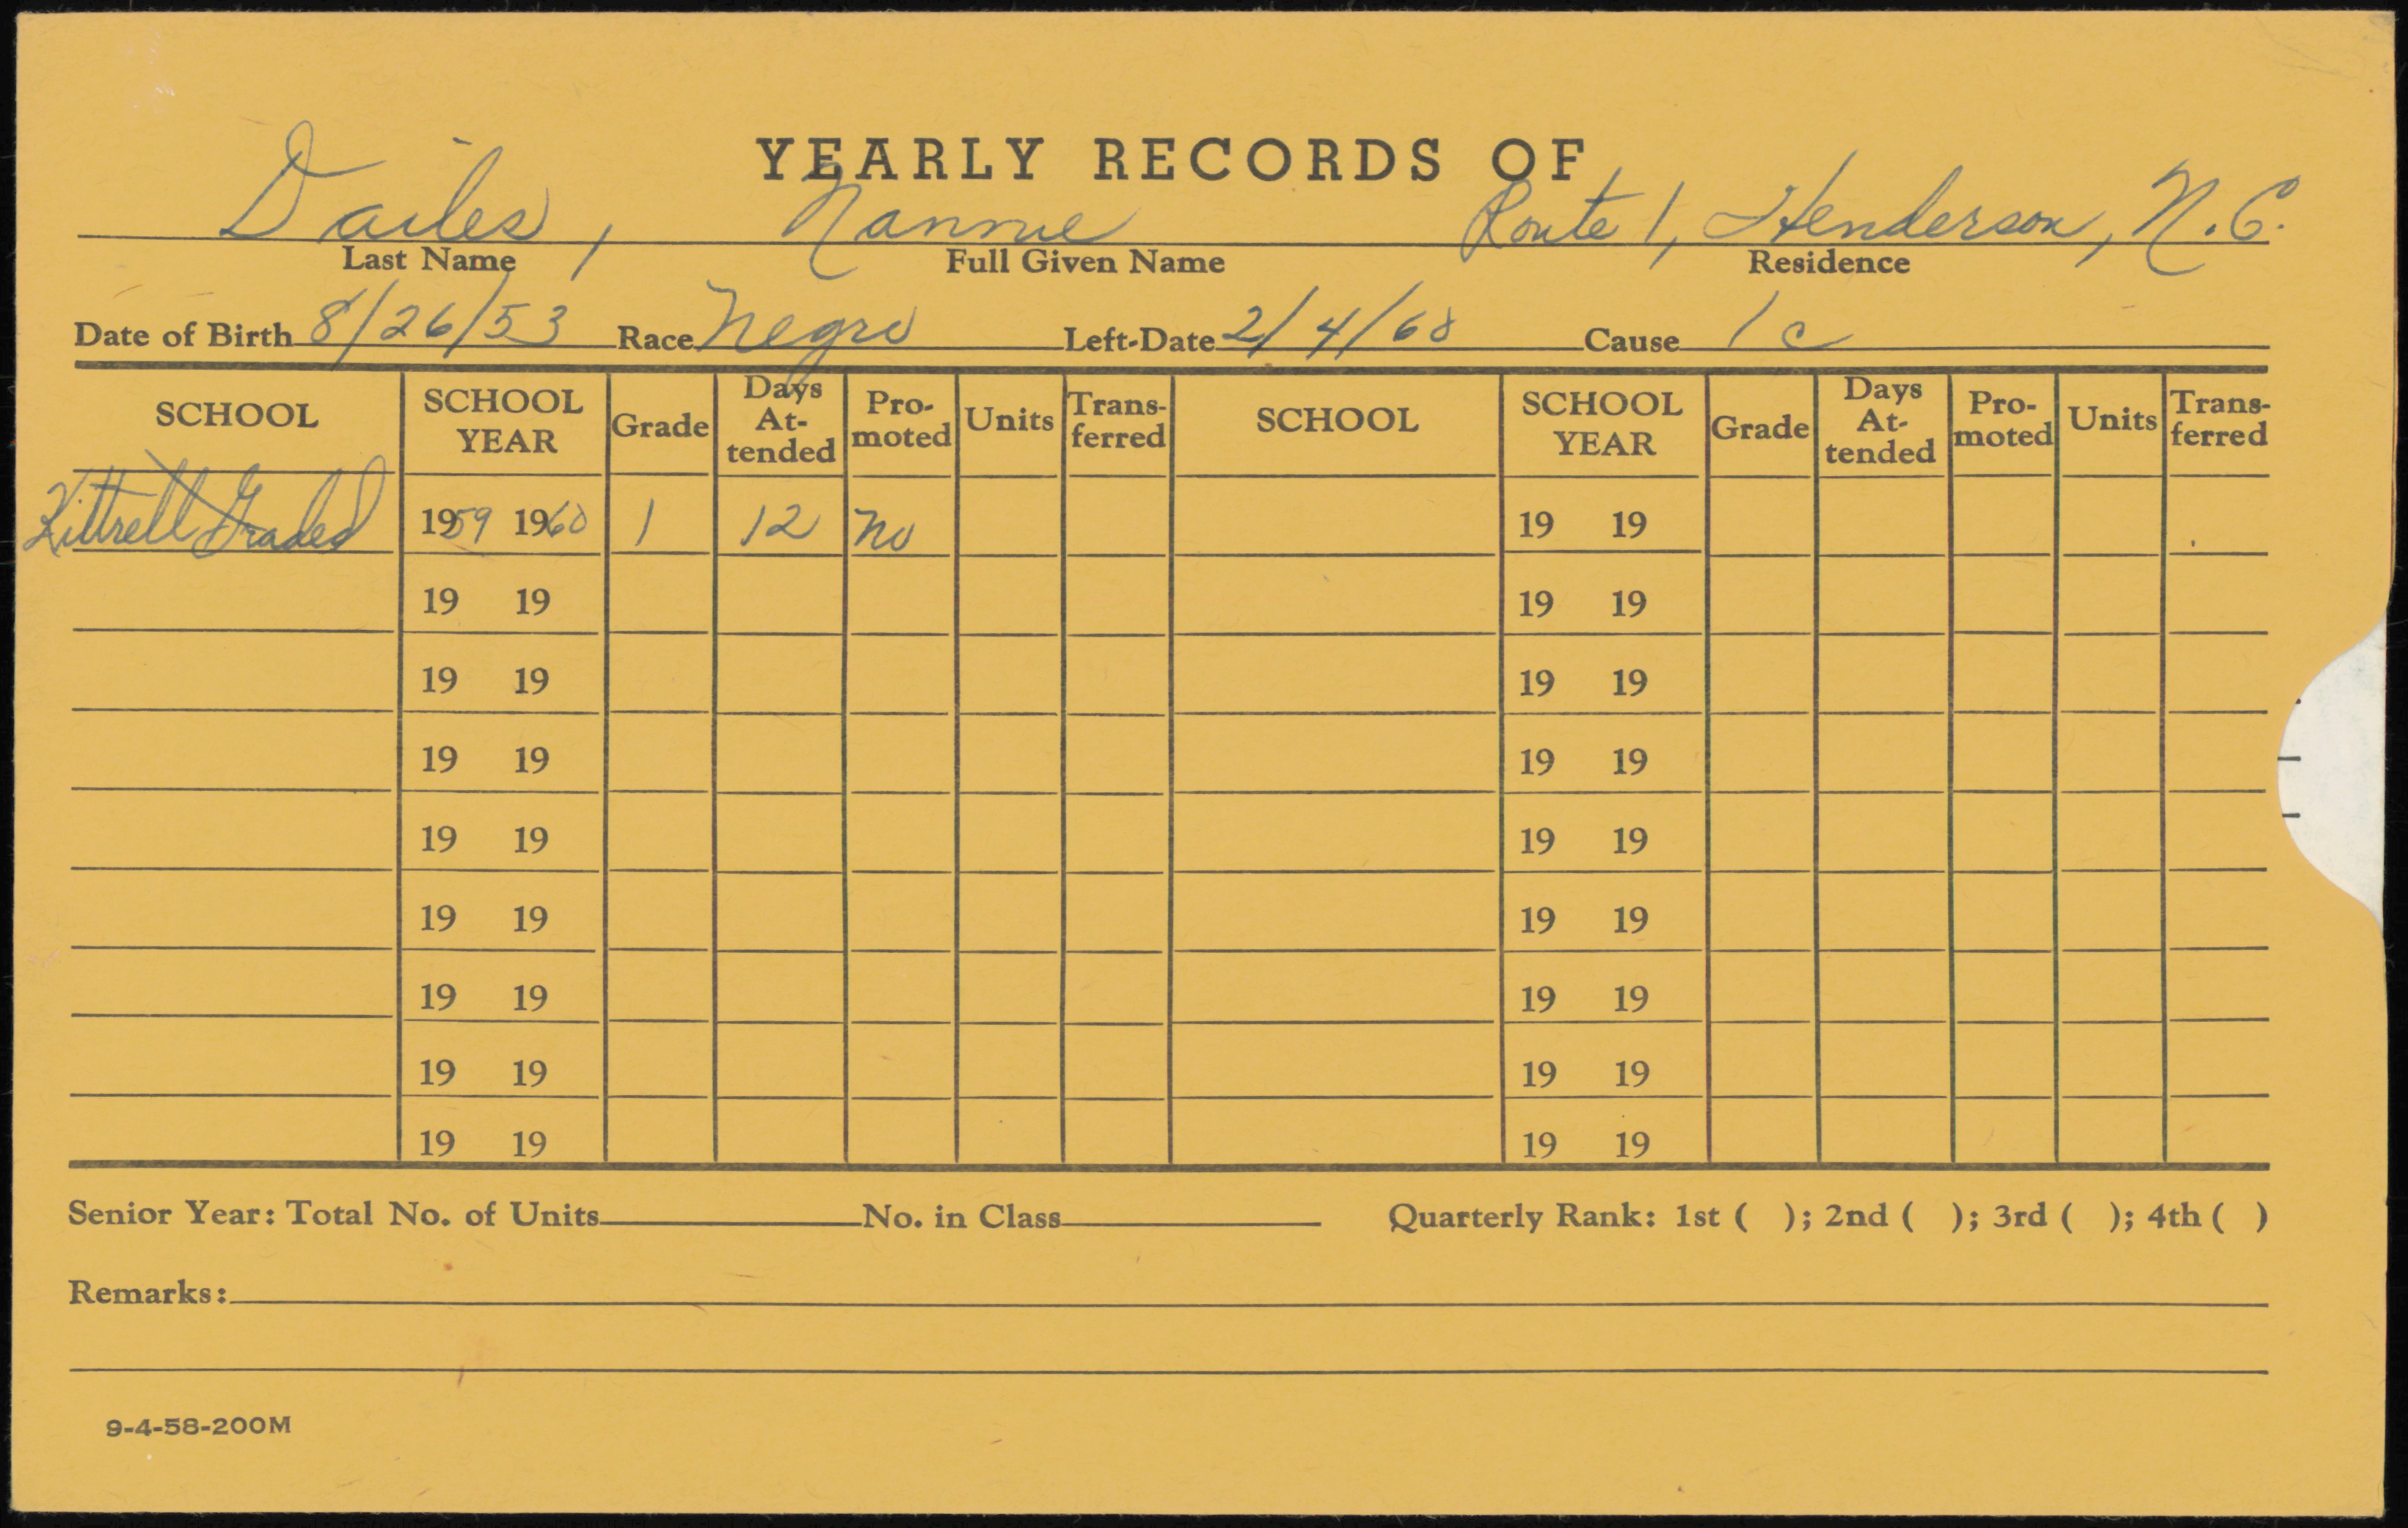 YEARLY RECORDS OF
Dailes, Nannie Route 1, Henderson, N.C.
Last Name Full Given Name Residence
Date of Birth 8/26/53 Race Negro Left-Date 2/4/60 Cause 1c
SCHOOL SCHOOL YEAR Grade Days At-tended Pro-moted Units Trans-ferred SCHOOL SCHOOL YEAR Grade Days At-tended Pro-moted Units Trans-ferred
Kittrell Graded 1959 1960 1 12 No 19 19
19 19 19 19
19 19 19 19
19 19 19 19
19 19 19 19
19 19 19 19
19 19 19 19
19 19 19 19
19 19 19 19
Senior Year: Total No. of Units No. in Class Quarterly Rank: 1st ( ); 2nd ( ); 3rd ( ); 4th ( )
Remarks:
9-4-58-200M